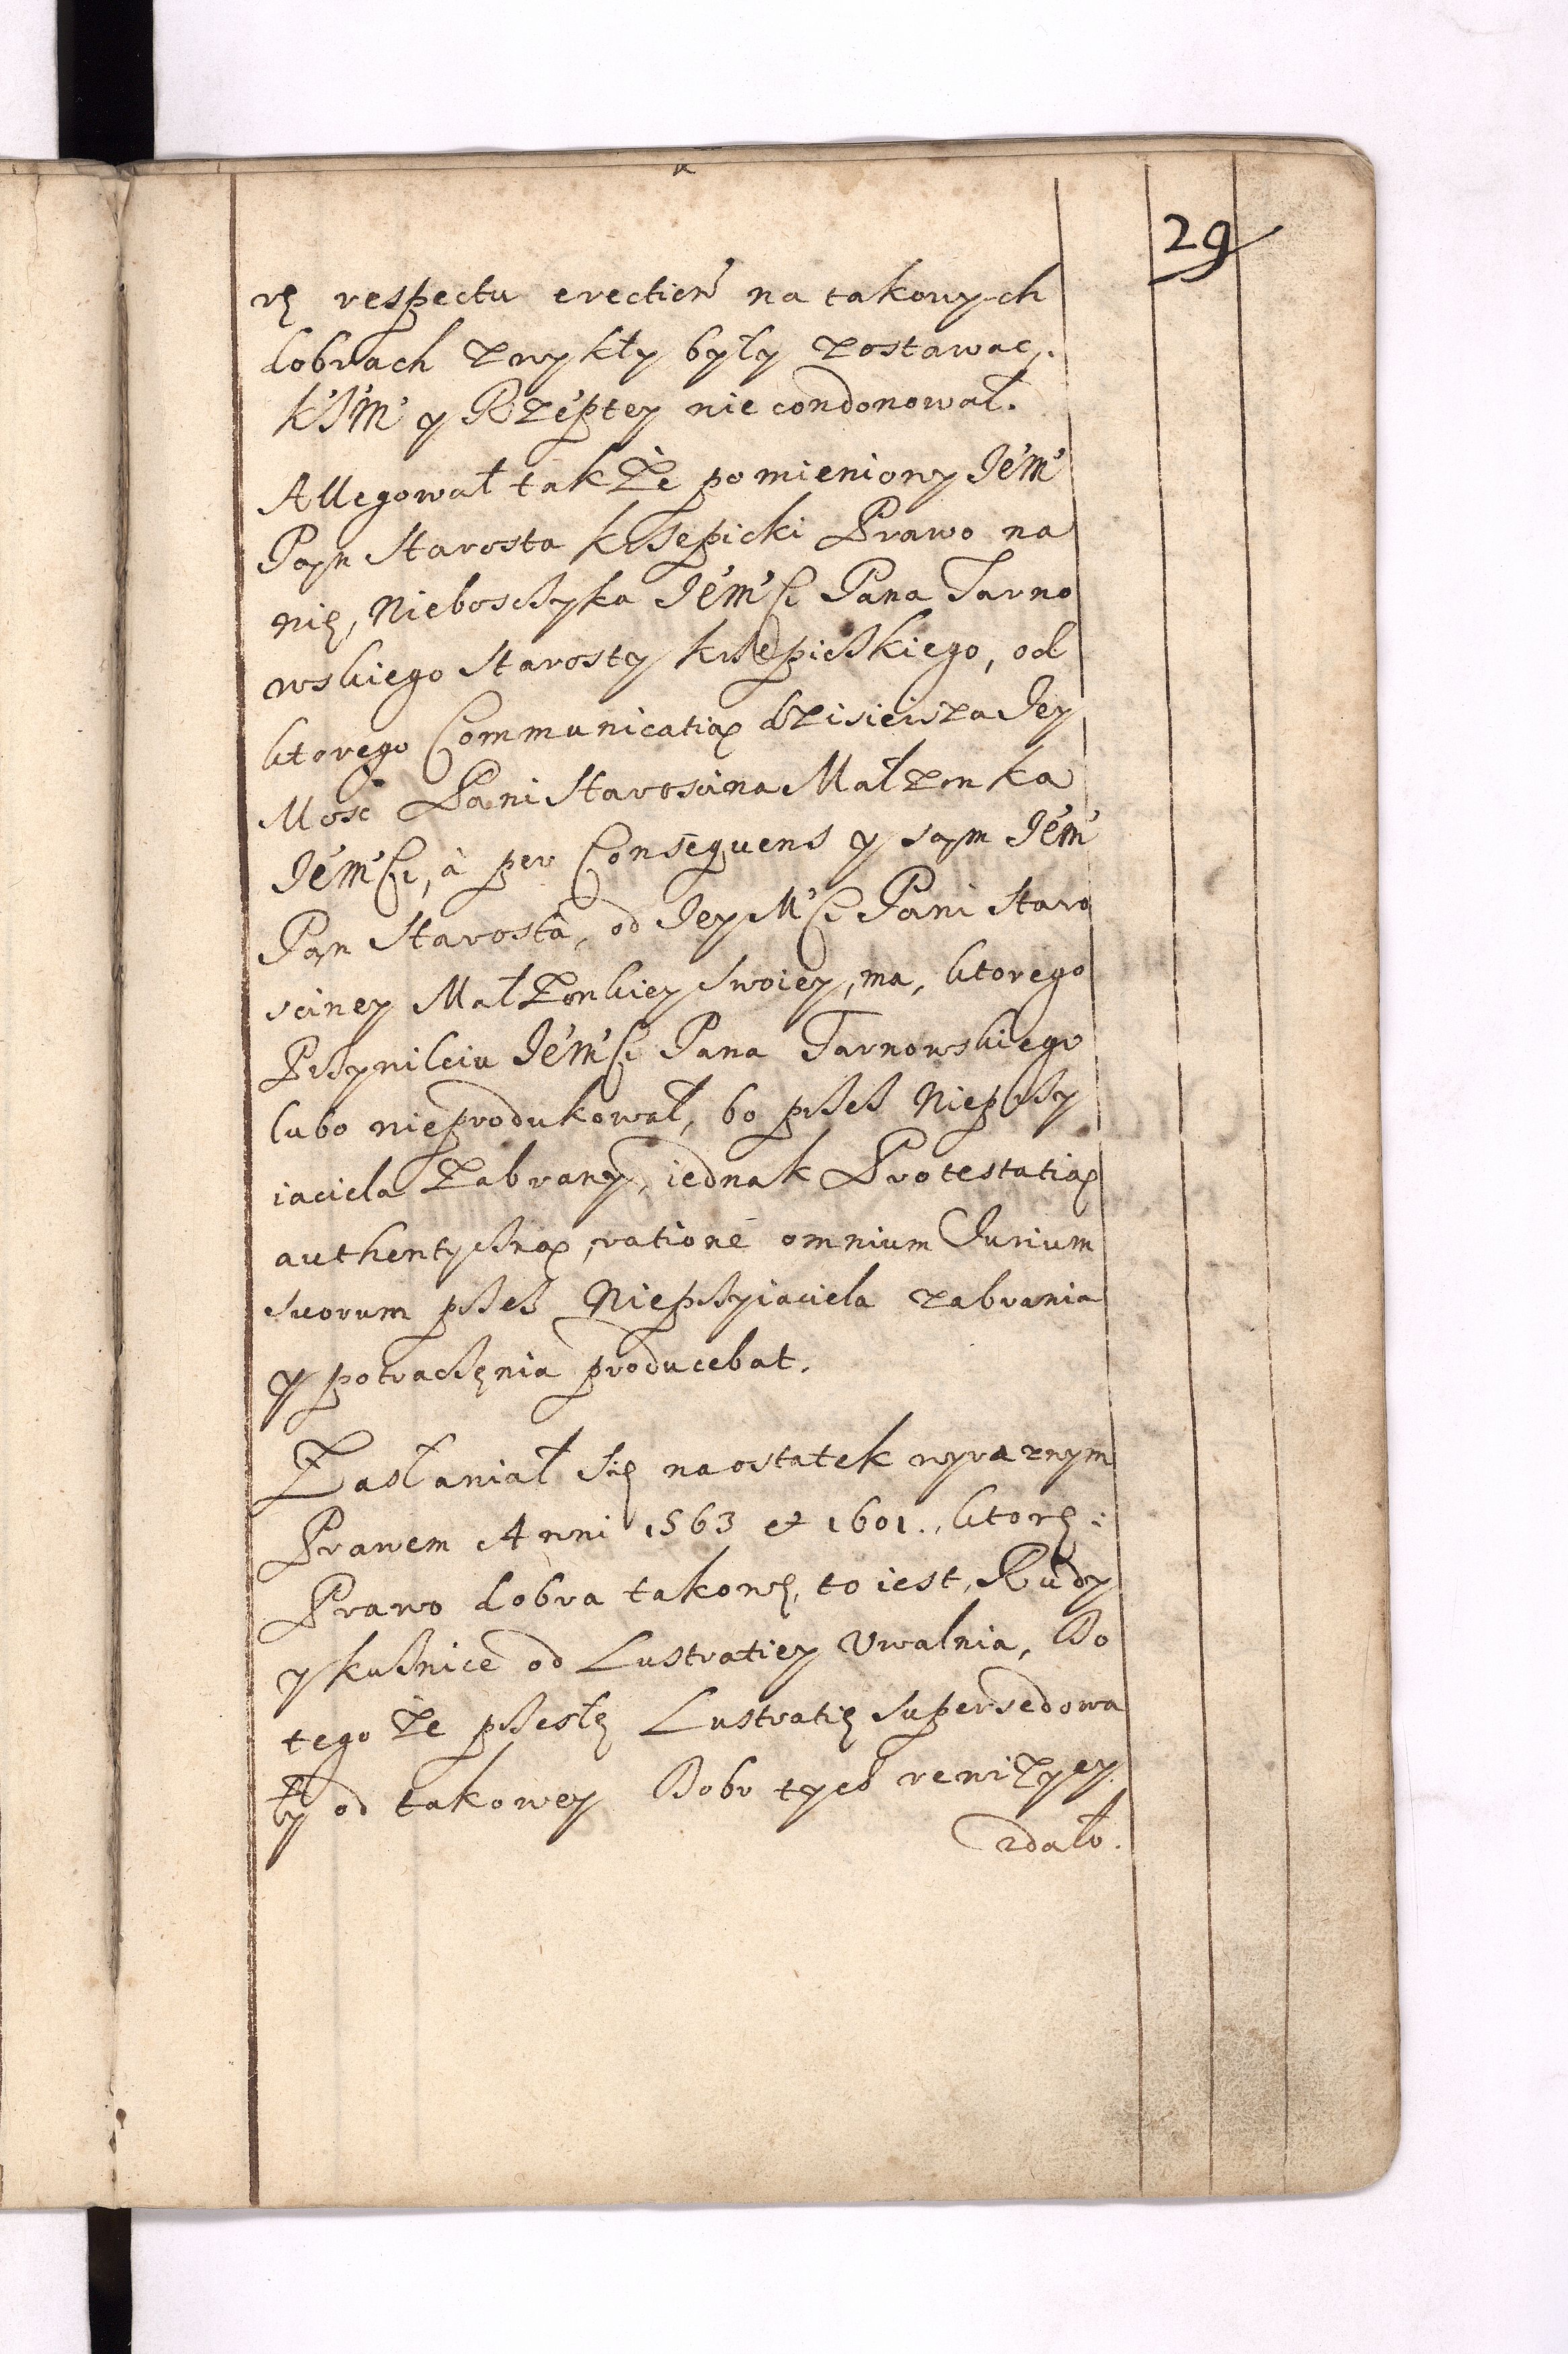 29
rę respectu erectień na takowych
dobrach zwykły były zostawac,
K'JM' y Rzéptey nie condonował.
Allegował także pomieniony Jé'M'
Pan Starosta krzepicki Prawo na
nię, Nieboszczyka Jé'M'Ci Pana Tarno
wskiego Starosty krzepickiego, od
ktorego Communicatią dzisieisza Jey
Mość Pani Starościna Małzonka
Jé'M'Ci, à per Consequens y sam Jé'M'
Pan Starosta, od Jey M'Ci Pani Staro
sciney Małżonkiey swoiey, ma, ktorego
Przywileiu Jé'M'Ci Pana Tarnowskiego
lubo nieprodukował, bo przez Nieprzy
iaciela zabrany, iednak Protestatią
authentyczną, ratione omnium Jurium
suorum przez Nieprzyiaciela zabrania
y potraczenia producebat.
Zasłaniał się naostatek wyraznym
Prawem Anni 1563 et 1601., ktorę:
Prawo dobra takowę, to iest, Rudy
y kuźnice od Lustratiey Uwalnia, Do
tego że przeszłę Lustratię supersedowa
ły od takowey Dobr tych rewizyey.
zdało.